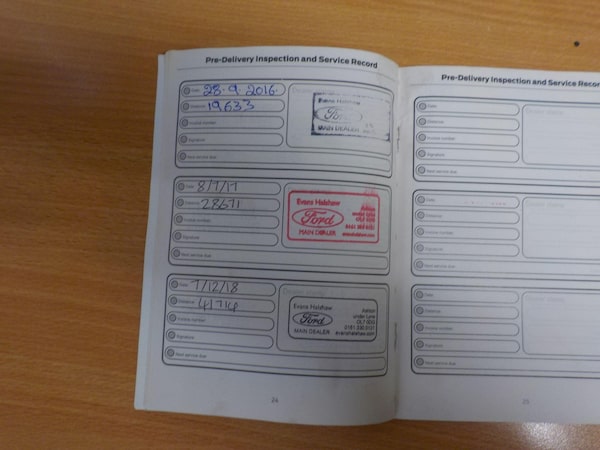 Pre-Delivery Inspection and Service Record
Date 28.9.2016.
Distance 19633
Invoice number
Signature
Next service due
Evans Halshaw
Ford
MAIN DEALER
Date 8/7/17
Distance 28671
Invoice number
Signature
Next service due
Evans Halshaw
Ford
MAIN DEALER
Date 7/12/18
Distance 41714
Invoice number
Signature
Next service due
Evans Halshaw
Ford
MAIN DEALER
Ashton
under Lyne
OL7 0QG
0161 330 0121
evanshalshaw.com
24
Pre-Delivery Inspection and Service Recor
Date
Distance
Invoice number
Signature
Next service due
Date
Distance
Invoice number
Signature
Next service due
Date
Distance
Invoice number
Signature
Next service due
25